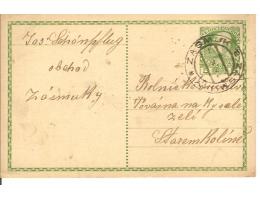 Jos. Schönpflug
obchod
Zásmuky
ZÁSMUKY
Rolnická
Továrna na kyselé
zelí
Starém Kolíně